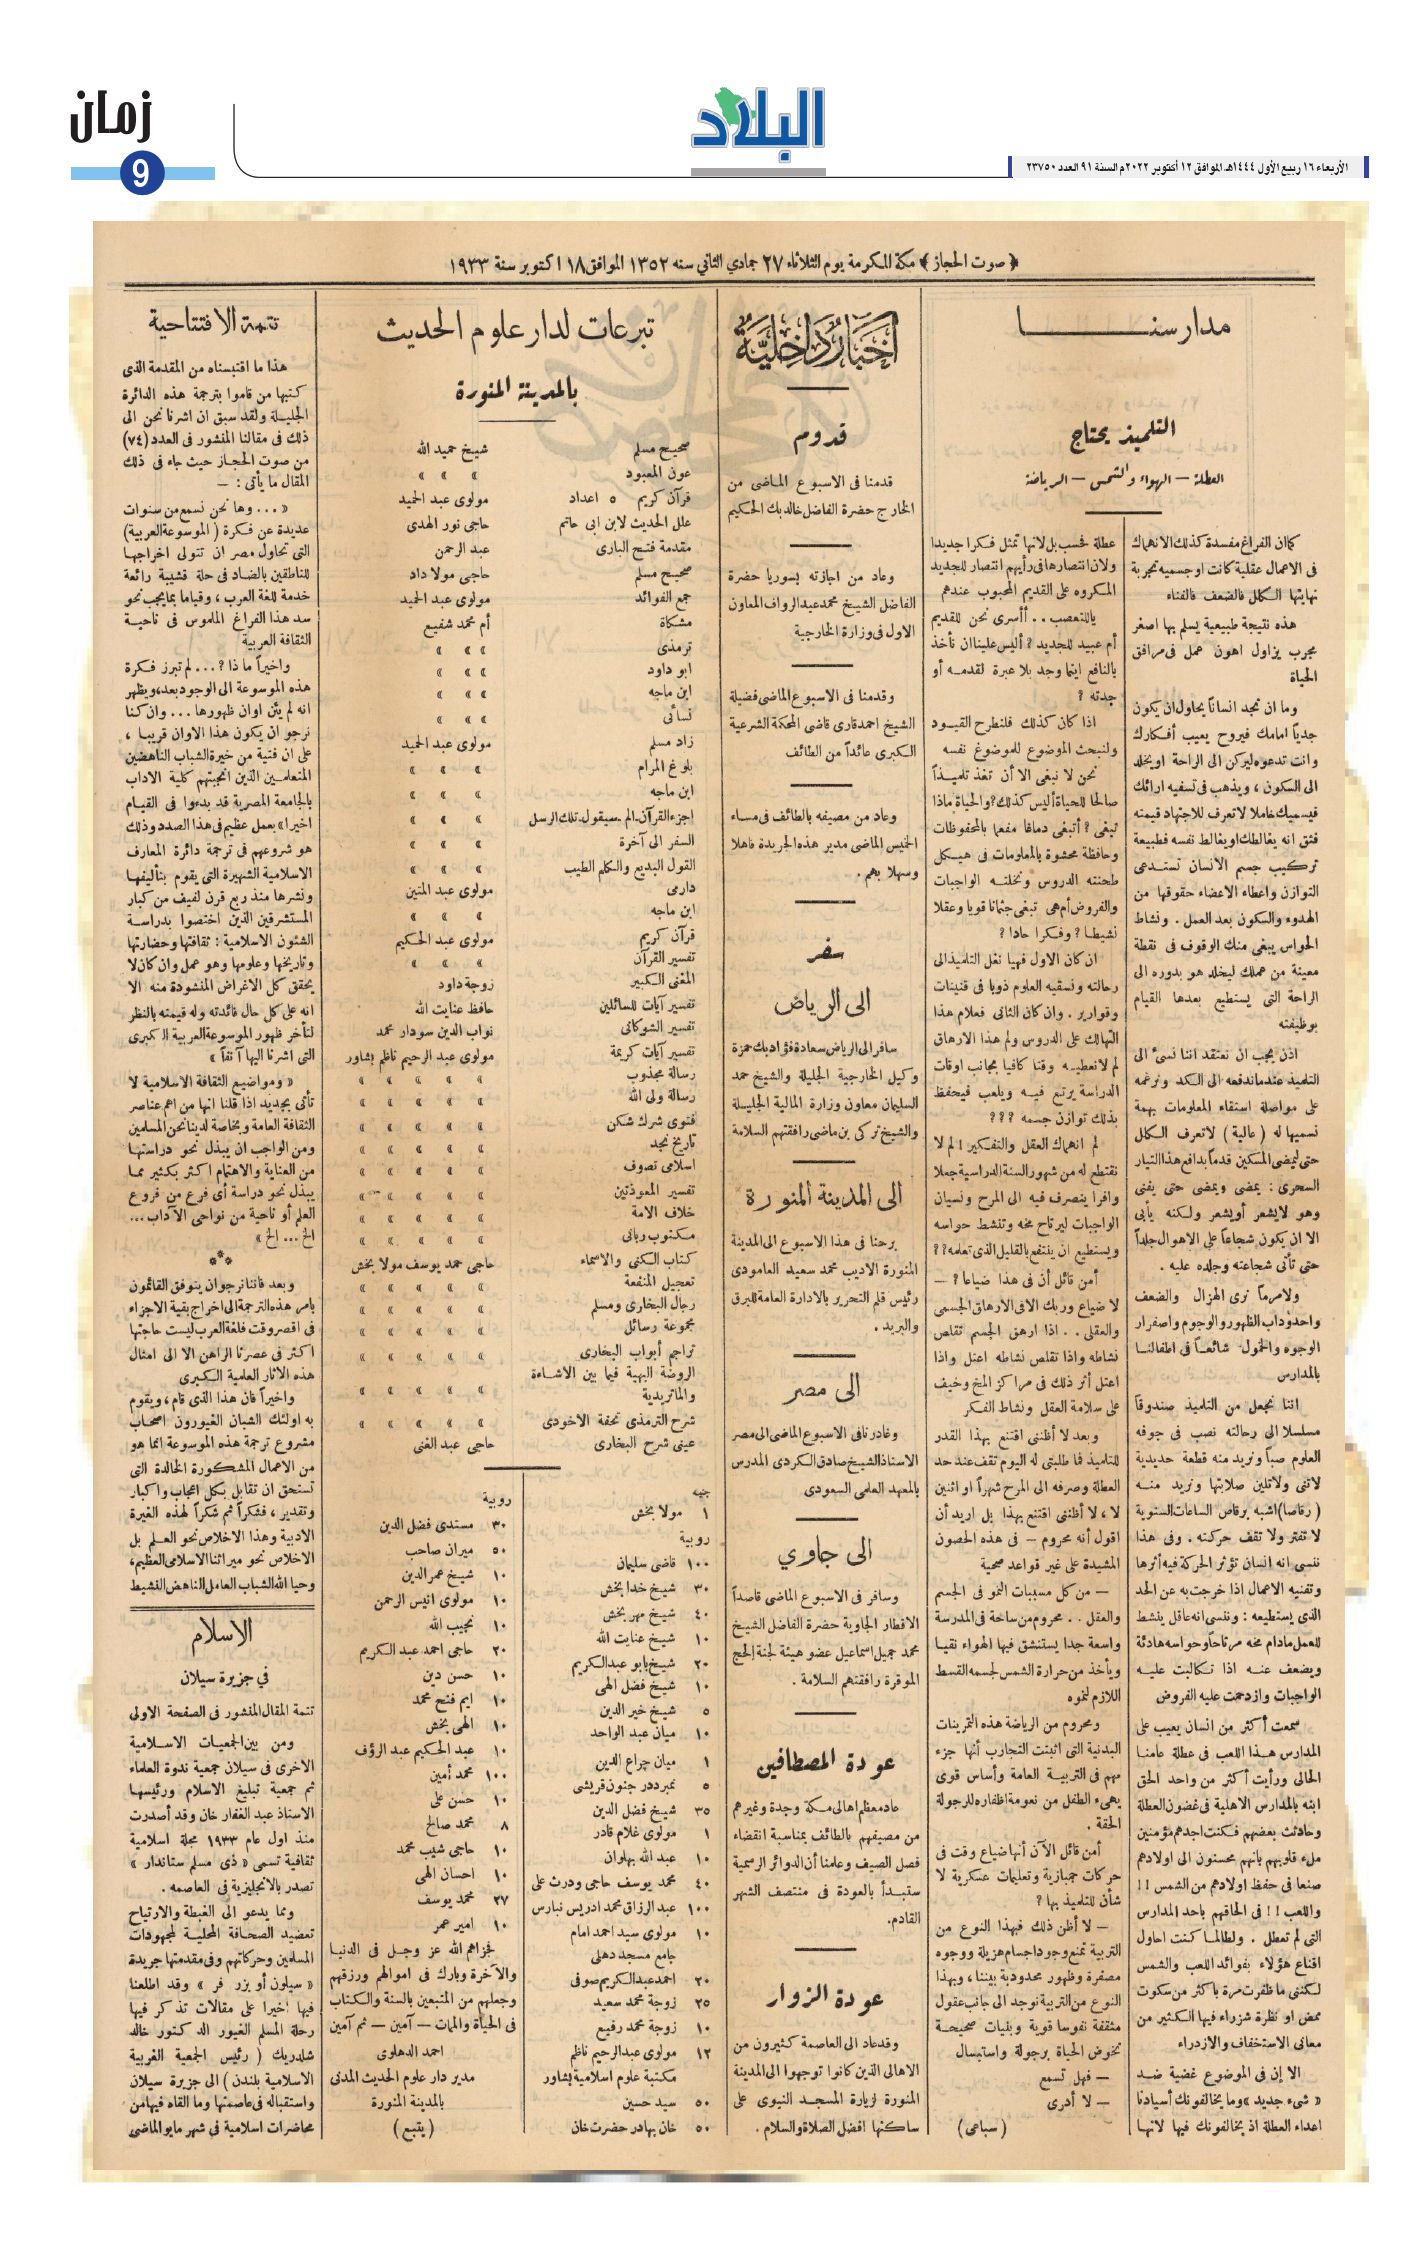 البلاد
زمان
9
الأربعاء ١٦ ربيع الأول ١٤٤٤هـ الموافق ١٢ أكتوبر ٢٠٢٢م السنة ٩١ العدد ٢٣٧٥٠
﴿ صوت الحجاز ﴾ مكة المكرمة يوم الثلاثاء ٢٧ جمادي الثاني سنه ١٣٥٢ الموافق ١٨ اكتوبر سنة ١٩٣٣
مدارسنا
التلميذ يحتاج
العطلة — الهواء والشمس — الرياضة
كما ان الفراغ مفسدة كذلك الانهماك
فى الاعمال عقلية كانت او جسميه تجربة
نهايتها الكلل فالضعف فالفناء
هذه نتيجة طبيعية يسلم بها اصغر
مجرب يزاول اهون عمل فى مرافق
الحياة
وما ان تجد انساناً يحاول ان يكون
جدياً امامك فيروح يعيب أفكارك
وانت تدعوه ليركن الى الراحة او يخلد
الى السكون ، ويذهب فى تسفيه ارائك
فيسميك خاملا لا تعرف للاجتهاد قيمته
فثق انه يغالطك او يغالط نفسه فطبيعة
تركيب جسم الانسان تستدعى
التوازن واعطاء الاعضاء حقوقها من
الهدوء والسكون بعد العمل . ونشاط
الحواس يبغى منك الوقوف فى نقطة
معينة من عملك ليخلد هو بدوره الى
الراحة التى يستطيع بعدها القيام
بوظيفته
اذن يجب ان نعتقد اننا نسئ الى
التلميذ عندما ندفعه الى الكد ونرغمه
على مواصلة استقاء المعلومات بهمة
نسميها له ( عالية ) لا تعرف الكلل
حتى ليمضى المسكين قدماً بدافع هذا التيار
السحرى : يمضى ويمضى حتى يفنى
وهو لا يشعر أو يشعر ولكنه يأبى
الا ان يكون شجاعاً على الاهوال جلداً
حتى تأتى شجاعته وجلده عليه .
ولامر ما نرى الهزال والضعف
واحدوداب الظهور والوجوم واصفرار
الوجوه والخمول شائعاً فى اطفالنا
بالمدارس
اننا نجعل من التلميذ صندوقاً
مسلسلا الى رحالته نصب فى جوفه
العلوم صباً ونريد منه قطعة حديدية
لا تنى ولا تلين صلابتها ونريد منه
( رقاصا ) اشبه برقاص الساعات السنوية
لا تفتر ولا تقف حركته . وفى هذا
ننسى انه انسان تؤثر الحركة فيه أثرها
وتفنيه الاعمال اذا خرجت به عن الحد
الذى يستطيعه : وننسى انه عاقل ينشط
للعمل مادام مخه مرتاحاً وحواسه هادئة
ويضعف عنه اذا تكالبت عليه
الواجبات وازدحمت عليه الفروض
سمعت أكثر من انسان يعيب على
المدارس هذا اللعب فى عطلة عامنا
الحالى ورأيت أكثر من واحد الحق
ابنه بالمدارس الاهلية فى غضون العطلة
وحادثت بعضهم فكنت اجدهم مؤمنين
ملء قلوبهم بانهم محسنون الى اولادهم
صنعا فى حفظ اولادهم من الشمس !!
واللعب !! فى الحاقهم باحد المدارس
التى لم تعطل . ولطالما كنت احاول
اقناع هؤلاء بفوائد اللعب والشمس
لكننى ما ظفرت مرة باكثر من سكوت
ممض او نظرة شزراء فيها الكثير من
معانى الاستخفاف والازدراء
الا إن فى الموضوع غضبة ضد
« شىء جديد » وما يخالفونك أسيادنا
اعداء العطلة اذ يخالفونك فيها لانها
عطلة فحسب بل لانها تمثل فكرا جديدا
ولان انتصارها فى رأيهم انتصار للجديد
المكروه على القديم المحبوب عندهم
ياللتعصب . . أأسرى نحن للقديم
أم عبيد للجديد ؟ أليس علينا ان نأخذ
بالنافع اينما وجد بلا عبرة لقدمه أو
جدته ؟
اذا كان كذلك فلنطرح القيود
ولنبحث الموضوع للموضوع نفسه
نحن لا نبغى الا أن تغذ تلميذاً
صالحا للحياة أليس كذلك ؟ والحياة ماذا
تبغى ؟ أتبغى دماغا مفعما بالمحفوظات
وحافظة محشوة بالمعلومات فى هيكل
طحنته الدروس ونخلته الواجبات
والفروض أم هى تبغى جثمانا قويا وعقلا
نشيطا ؟ وفكرا حادا ؟
ان كان الاول فهيا نغل التلميذ الى
رحالته ونسقيه العلوم ذوبا فى قنينات
وقوارير . وان كان الثانى فعلام هذا
التهالك على الدروس ولم هذا الارهاق
لم لا نعطيه وقتا كافيا بجانب اوقات
الدراسة يرتع فيه ويلعب فيحفظ
بذلك توازن جسمه ؟؟؟
لم انهماك العقل والتفكير ! لم لا
نقتطع له من شهور السنة الدراسية جعلا
وافرا ينصرف فيه الى المرح ونسيان
الواجبات ليرتاح مخه وتنشط حواسه
ويستطيع ان ينتفع بالقليل الذى تعلمه ؟؟
أمن قائل أن فى هذا ضياعا ؟ —
لا ضياع وربك الا فى الارهاق الجسمى
والعقلى . . اذا ارهق الجسم تقلص
نشاطه واذا تقلص نشاطه اعتل واذا
اعتل أثر ذلك فى مراكز المخ وخيف
على سلامة العقل ونشاط الفكر
وبعد لا أظننى اقتنع بهذا القدر
للتلميذ فما طلبتى له اليوم تقف عند حد
العطلة وصرفه الى المرح شهراً او اثنين
لا ، لا أظننى اقتنع بهذا بل اريد أن
اقول أنه محروم — فى هذه الحصون
المشيدة على غير قواعد صحية
— من كل مسببات النمو فى الجسم
والعقل . . محروم من ساحة فى المدرسة
واسعة جدا يستنشق فيها الهواء نقيا
ويأخذ من حرارة الشمس لجسمه القسط
اللازم لنموه
ومحروم من الرياضة هذه التمرينات
البدنية التى اثبتت التجارب أنها جزء
مهم فى التربية العامة وأساس قوى
يهىء الطفل من نعومة اظفاره للرجولة
الحقة .
أمن قائل الآن أنها ضياع وقت فى
حركات جمبازية وتعليمات عسكرية لا
شأن للتلميذ بها ؟
— لا أظن ذلك فبهذا النوع من
التربية تمنع وجود اجسام هزيلة ووجوه
مصفرة وظهور محدودبة بيننا ، وبهذا
النوع من التربية نوجد الى جانب عقول
مثقفة نفوسا قوية وبنيات صحيحة
تخوض الحياة برجولة واستبسال
— فهل تسمع
— لا أدرى
( سباعى )
أخبار داخلية
قدوم
قدمنا فى الاسبوع الماضى من
الخارج حضرة الفاضل خالد بك الحكيم
وعاد من اجازته بسوريا حضرة
الفاضل الشيخ محمد عيد الرواف المعاون
الاول فى وزارة الخارجية
وقدمنا فى الاسبوع الماضى فضيلة
الشيخ احمد قارى قاضى المحكمة الشرعية
الكبرى عائداً من الطائف
وعاد من مصيفه بالطائف فى مساء
الخميس الماضى مدير هذه الجريدة فاهلا
وسهلا بهم .
سفر
الى الرياض
سافر الى الرياض سعادة فؤاد بك حمزة
وكيل الخارجية الجليلة والشيخ حمد
السليمان معاون وزارة المالية الجليلة
والشيخ تركى بن ماضى رافقتهم السلامة
الى المدينة المنورة
برحنا فى هذا الاسبوع الى المدينة
المنورة الاديب محمد سعيد العامودى
رئيس قلم التحرير بالادارة العامة للبرق
والبريد .
الى مصر
وغادرنا فى الاسبوع الماضى الى مصر
الاستاذ الشيخ صادق الكردى المدرس
بالمعهد العلمى السعودى
الى جاوي
وسافر فى الاسبوع الماضى قاصداً
الاقطار الجاوية حضرة الفاضل الشيخ
محمد جميل اسماعيل عضو هيئة لجنة الحج
الموقرة رافقتهم السلامة .
عودة المصطافين
عاد معظم اهالى مكة وجدة وغيرهم
من مصيفهم بالطائف بمناسبة انقضاء
فصل الصيف وعلمنا أن الدوائر الرسمية
ستبدأ بالعودة فى منتصف الشهر
القادم .
عودة الزوار
وقد عاد الى العاصمة كثيرون من
الاهالى الذين كانوا توجهوا الى المدينة
المنورة لزيارة المسجد النبوى على
ساكنها افضل الصلاة والسلام .
تبرعات لدار علوم الحديث
بالمدينة المنورة
صحيح مسلم شيخ حميد الله
عون المعبود » » »
قرآن كريم ٥ اعداد مولوى عبد الحميد
علل الحديث لابن ابى حاتم حاجى نور الهدى
مقدمة فتح البارى عبد الرحمن
صحيح مسلم حاجى مولا داد
جمع الفوائد مولوى عبد الحميد
مشكاة أم محمد شفيع
ترمذى » » »
ابو داود » » »
ابن ماجه » » »
نسائى » » »
زاد مسلم مولوى عبد الحميد
بلوغ المرام » » »
ابن ماجه » » »
اجزء القرآن - الم - سيقول - تلك الرسل » » »
السفر الى آخرة » » »
القول البديع والكلم الطيب » » »
دارمى مولوى عبد المتين
ابن ماجه » » »
قرآن كريم مولوى عبد الحكيم
تفسير القرآن » » »
المغنى الكبير زوجة داود
تفسير آيات للسائلين حافظ عنايت الله
تفسير الشوكانى نواب الدين سودار محمد
تفسير آيات كريمة مولوى عبد الرحيم ناظم بشاور
رسالة مجذوب » » » » »
رسالة ولى الله » » » » »
فتوى شرك شكن » » » » »
تاريخ نجد » » » » »
اسلامى تصوف » » » » »
تفسير المعوذتين » » » » »
خلاف الامة » » » » »
مكتوب ربانى » » » » »
كتاب الكنى والاسماء حاجى حمد يوسف مولا بخش
تعجيل المنفعة » » » » »
رجال البخارى ومسلم » » » » »
مجموعة رسائل » » » » »
تراجم أبواب البخارى » » » » »
الروضة البهية فيما بين الاشاءة
والماتريدية » » » » »
شرح الترمذى تحفة الاخوذى » » » » »
عينى شرح البخارى حاجى عبد الغنى
جنيه
١ مولا بخش
روبية
١٠٠ قاضى سليمان
٣٠ شيخ خدا بخش
٤٠ شيخ مهر بخش
١٠ شيخ عنايت الله
٢٠ شيخ بابو عبد الكريم
١٠ شيخ فضل الهى
٥ شيخ خير الدين
١٠ ميان عبد الواحد
١ ميان چراغ الدين
٥ نمبردار جنون قريشى
٣٥ شيخ فضل الدين
١ مولوى غلام قادر
١٠ عبد الله بهلوان
٤٠ محمد يوسف حاجى ودرث على
١٠٠ عبد الرزاق محمد ادريس نبارس
١٠ مولوى سيد احمد امام
جامع مسجد دهلى
٢٠ احمد عبد الكريم صوفى
٢٥ زوجة محمد سعيد
١٠ زوجة محمد رفيع
١٢ مولوى عبد الرحيم ناظم
مكتبة علوم اسلامية بشاور
٥٠ سيد حسين
٥٠ خان بهادر حضرت خان
روبية
٣٠ مستدى فضل الدين
٥٠ ميران صاحب
١٠ شيخ عمر الدين
١٠ مولوى انيس الرحمن
١٠ نجيب الله
٢٠ حاجى احمد عبد الكريم
١٠ حسن دين
١٠ ايم فتح محمد
١٠ الهى بخش
١٠ عبد الحكيم عبد الرؤف
١٠٠ محمد أمين
١٠ حسن على
٨ محمد صالح
١٠ حاجى شيب محمد
١٠ احسان الهى
٢٧ محمد يوسف
١٠ امير عمر
فجزاهم الله عز وجل فى الدنيا
والآخرة وبارك فى اموالهم ورزقهم
وجعلهم من المتبعين بالسنة والكتاب
فى الحياة والممات — آمين — ثم آمين
احمد الدهلوى
مدير دار علوم الحديث المدنى
بالمدينة المنورة
( يتبع )
تتمة الافتتاحية
هذا ما اقتبسناه من المقدمة الذى
كتبها من قاموا بترجمة هذه الدائرة
الجليلة ولقد سبق ان اشرنا نحن الى
ذلك فى مقالنا المنشور فى العدد (٧٤)
من صوت الحجاز حيث جاء فى ذلك
المقال ما يأتى : —
« ... وها نحن نسمع من سنوات
عديدة عن فكرة ( الموسوعة العربية )
التى تحاول مصر ان تتولى اخراجها
للناطقين بالضاد فى حلة قشيبة رائعة
خدمة للغة العرب ، وقياما بما يجب نحو
سد هذا الفراغ الملموس فى ناحية
الثقافة العربية
واخيراً ماذا ؟ ... لم تبرز فكرة
هذه الموسوعة الى الوجود بعد، ويظهر
انه لم يئن اوان ظهورها ... وان كنا
نرجو ان يكون هذا الاوان قريبا ،
على ان فتية من خيرة الشباب الناهضين
المتعلمين الذين انجبتهم كلية الاداب
بالجامعة المصرية قد بدءوا فى القيام
اخيرا، بعمل عظيم فى هذا الصدد وذلك
هو شروعهم فى ترجمة دائرة المعارف
الاسلامية الشهيرة التى يقوم بتأليفها
ونشرها منذ ربع قرن لفيف من كبار
المستشرقين الذين اختصوا بدراسة
الشئون الاسلامية : ثقافتها وحضارتها
وتاريخها وعلومها وهو عمل وان كان لا
يحقق كل الاغراض المنشودة منه الا
انه على كل حال فائدته وله قيمته بالنظر
لتأخر ظهور الموسوعة العربية الكبرى
التى اشرنا اليها آنفاً »
« ومواضيع الثقافة الاسلامية لا
تأتى بجديد اذا قلنا انها من اهم عناصر
الثقافة العامة وبخاصة لدينا نحن المسلمين
ومن الواجب ان يبذل نحو دراستها
من العناية والاهتمام اكثر بكثير مما
يبذل نحو دراسة أى فرع من فروع
العلم أو ناحية من نواحى الآداب ...
الخ ... الخ »
***
وبعد فاننا نرجو ان يتوفق القائمون
بامر هذه الترجمة الى اخراج بقية الاجزاء
فى اقصر وقت فلغة العرب ليست حاجتها
اكثر فى عصرنا الراهن الا الى امثال
هذه الاثار العلمية الكبرى
واخيراً فان هذا الذى قام ، ويقوم
به اولئك الشبان الغيورون اصحاب
مشروع ترجمة هذه الموسوعة انما هو
من الاعمال المشكورة الخالدة التى
تستحق ان تقابل بكل اعجاب واكبار
وتقدير ، فشكراً ثم شكراً لهذه الغيرة
الادبية وهذا الاخلاص نحو العلم بل
الاخلاص نحو ميراثنا الاسلامى العظيم،
وحيا الله الشباب العامل الناهض النشيط
الاسلام
في جزيرة سيلان
تتمة المقال المنشور فى الصفحة الاولى
ومن بين الجمعيات الاسلامية
الاخرى فى سيلان جمعية ندوة العلماء
ثم جمعية تبليغ الاسلام ورئيسها
الاستاذ عبد الغفار خان وقد أصدرت
منذ اول عام ١٩٣٣ مجلة اسلامية
ثقافية تسمى « ذى مسلم ستاندار »
تصدر بالانجليزية فى العاصمه .
ومما يدعو الى الغبطة والارتياح
تعضيد الصحافة المحلية لمجهودات
المسلمين وحركاتهم وفى مقدمتها جريدة
« سيلون أوبزرفر » وقد اطلعنا
فيها اخيرا على مقالات تذكر فيها
رحلة المسلم الغيور الدكتور خالد
شلدريك ( رئيس الجمعية الغربية
الاسلامية بلندن ) الى جزيرة سيلان
واستقباله فى عاصمتها وما القاه فيها من
محاضرات اسلامية فى شهر مايو الماضى